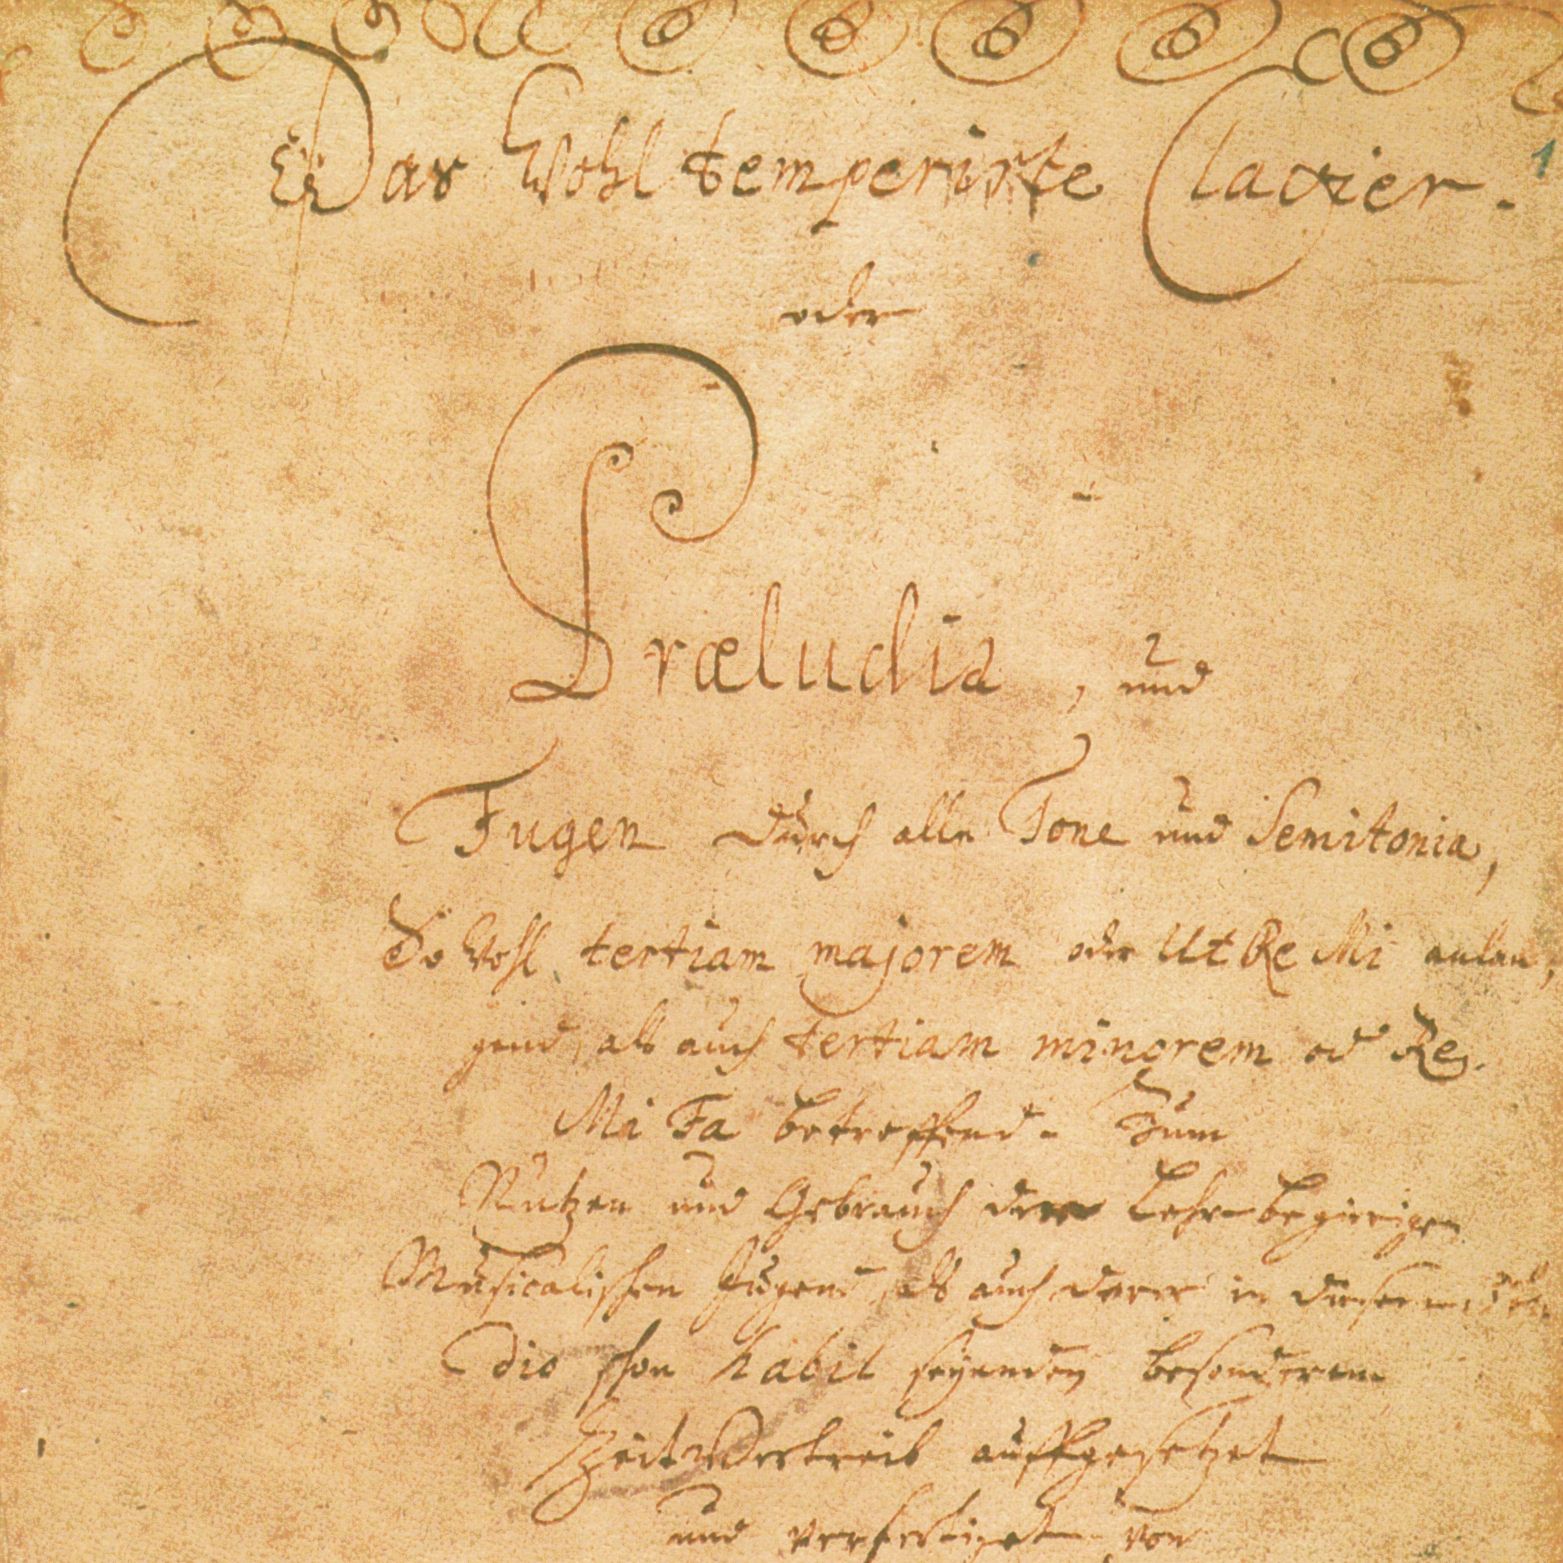 Das Wohltemperirte Clavier.
oder
Præludia, und
Fugen durch alle Tone und Semitonia,
So wohl tertiam majorem oder Ut Re Mi anlan,
gend, als auch tertiam minorem od Re
Mi Fa betreffend. Zum
Nutzen und Gebrauch der Lehrbegierigen
Musicalischen Jugend, als auch derer in diesem stu
dio schon habil seyenden besonderem
ZeitVertreib auffgesetzet
und verfertiget von